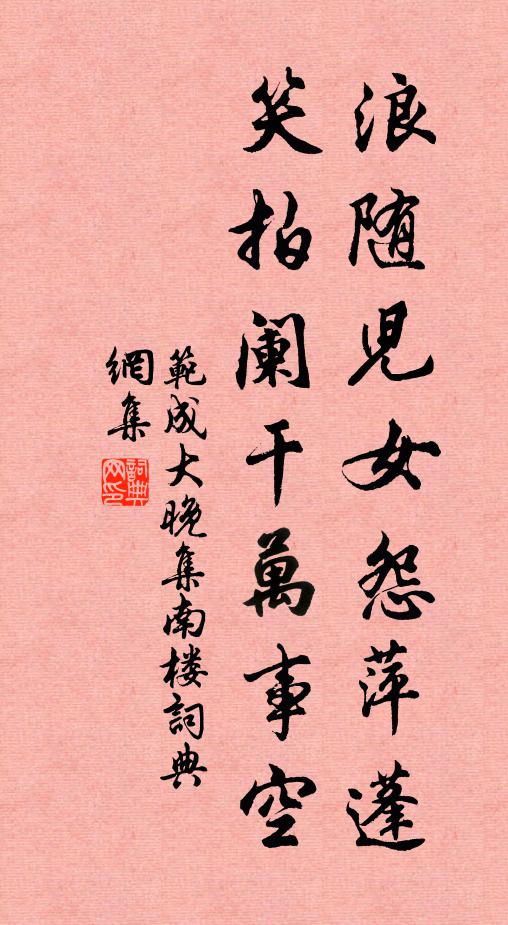 浪随兒女怨萍蓬
笑拍阑干萬事空
範成大晚集南楼詞典
網集
詞典網印